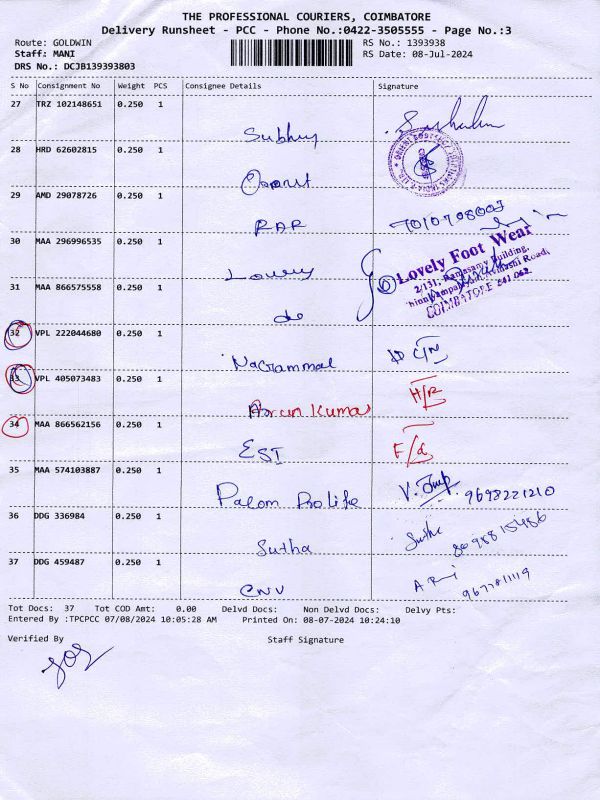 THE PROFESSIONAL COURIERS, COIMBATORE
Delivery Runsheet - PCC - Phone No.:0422-3505555 - Page No.:3
Route: GOLDWIN RS No.: 1393938
Staff: MANI RS Date: 08-Jul-2024
DRS No.: DCJB139393803
S No Consignment No Weight PCS Consignee Details Signature
27 TRZ 102148651 0.250 1
28 HRD 62602815 0.250 1
29 AMD 29078726 0.250 1
RAR 7010708003
30 MAA 296996535 0.250 1
Lovely Lovely Foot Wear
2/131, Ramasamy Building,
31 MAA 866575558 0.250 1
do COIMBATORE 641 062.
32 VPL 222044680 0.250 1
Nacrammal
33 VPL 405073483 0.250 1
Arun Kumar H/R
34 MAA 866562156 0.250 1
ESI
35 MAA 574103887 0.250 1
Palom Prolife 9698221210
36 DDG 336984 0.250 1
Sutha Sutha 8698815486
37 DDG 459487 0.250 1
CNV
Tot Docs: 37 Tot COD Amt: 0.00 Delvd Docs: Non Delvd Docs: Delvy Pts:
Entered By :TPCPCC 07/08/2024 10:05:28 AM Printed On: 08-07-2024 10:24:10
Verified By Staff Signature